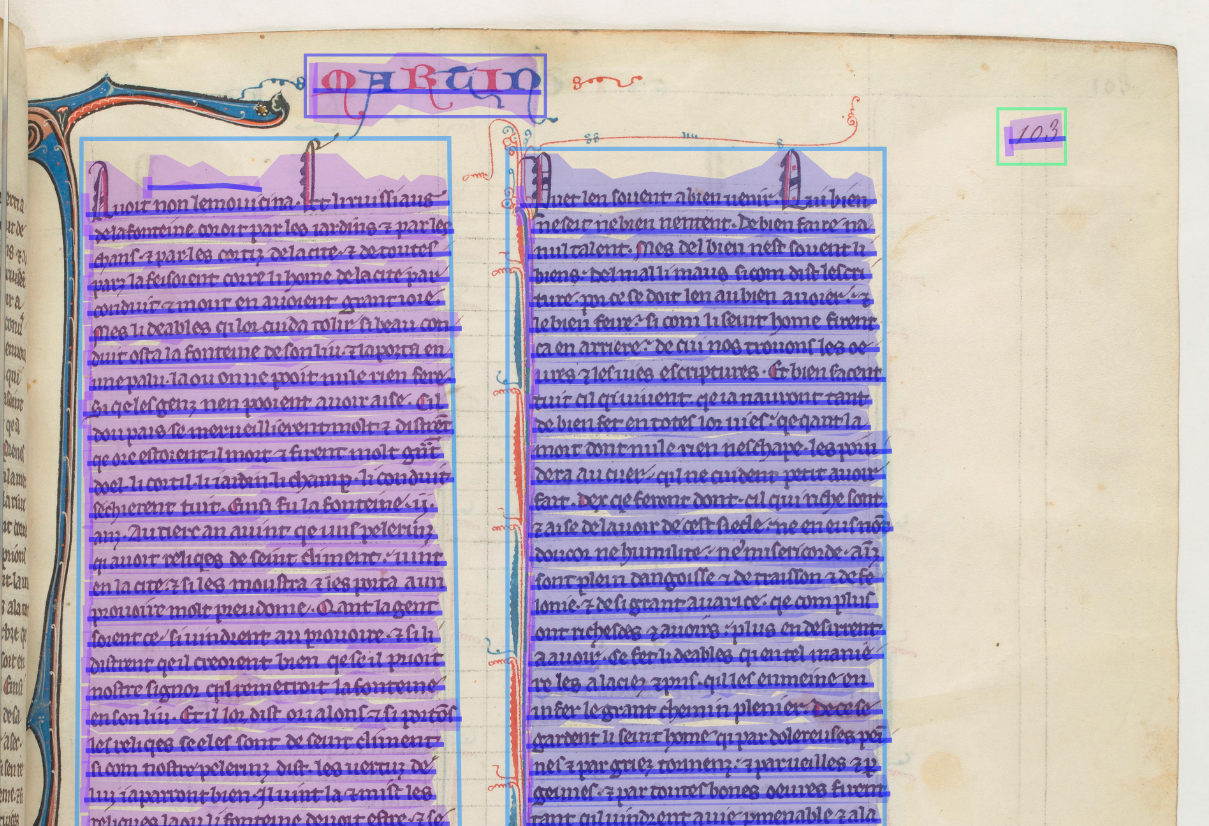 MARTIN
103
Avoit non lemovicina. Et li ruissiaus
de la fonteine coroit par les iardins ⁊ par les
chans. ⁊ par les cortiz de la cite. ⁊ de toutes
parz la feisoient corre li home de la cite par
conduit ⁊ mout en avoient grant ioie.
Mes li deables qi lor cuida tolir si beau con
duit osta la fonteine de son liu ⁊ la porta en
une palu. la ou on ne pooit nule rien fere
Si qe les genz nen pooient avoir aise. Cil
dou pais se merveillierent molt ⁊ distrent
qe ore estoient il mort ⁊ firent molt gnt
doel. li cortil. li iardin. li champ. li conduit
sechierent tuit. Einsi fu la fonteine .ij.
anz. Au tierc an avint qe uns pelerinz
qi avoit reliqes de seint Climent. vint
en la cite ⁊ si les moustra ⁊ les porta a un
provoire molt preudome. Qant la gent
soient ce. si vindrent au provoire. ⁊ si li
distrent qe il creoient bien qe se il prioit
nostre signor qil remetroit la fonteine
en son liu. Et il lor dist or i alons ⁊ si portōs
les reliqes se eles sont de seint climent
si com nostre pelerinz dist. les vertuz de
lui i aparront bien. Il vint la ⁊ mist les
reliqes la ou li fonteine devoit estre. ⁊ se
Puet len sovent a bien venir. Qui bien
ne set ne bien nentent. De bien faire na
nul talent. Mes del bien nest sovent li
biens. Del mal li maus si com dist lescri
ture. por ce se doit len au bien avoier. ⁊
le bien feire. si com li seint home firent
ca en arriere. de cui nos trovons les oe
vres ⁊ les vies escriptures. Et bien sacent
tuit cil qi vivent. qe ia nauront tant
de bien fet en totes lor vies. qe qant la
mort dont nule rien neschape les poin
dera au cuer. qil ne cuident petit avoir
fait. Dex qe feront dont. cil qui riche sont
⁊ aise de lavoir de cest siecle. ne en eus nōt
doucor ne humilite. ne misericorde. aīz
sont plein dangoisse ⁊ de traisson ⁊ de fe
lonie. ⁊ de si grant avarice. qe com plus
ont richesces ⁊ avoirs. plus en desirrent
a avoir. Ce fet li deables qi en tel manie
re les a laciez ⁊ pris. qil les enmeine en
infer le grant chemin plenier. De ce se
gardent li seint home qi par dolereuses poi
nes ⁊ par griez tormenz. ⁊ par veilles ⁊ ꝑ
geunes. ⁊ par toutes bones oevres firent
tant qil vindrent a vie pmenable ⁊ a la